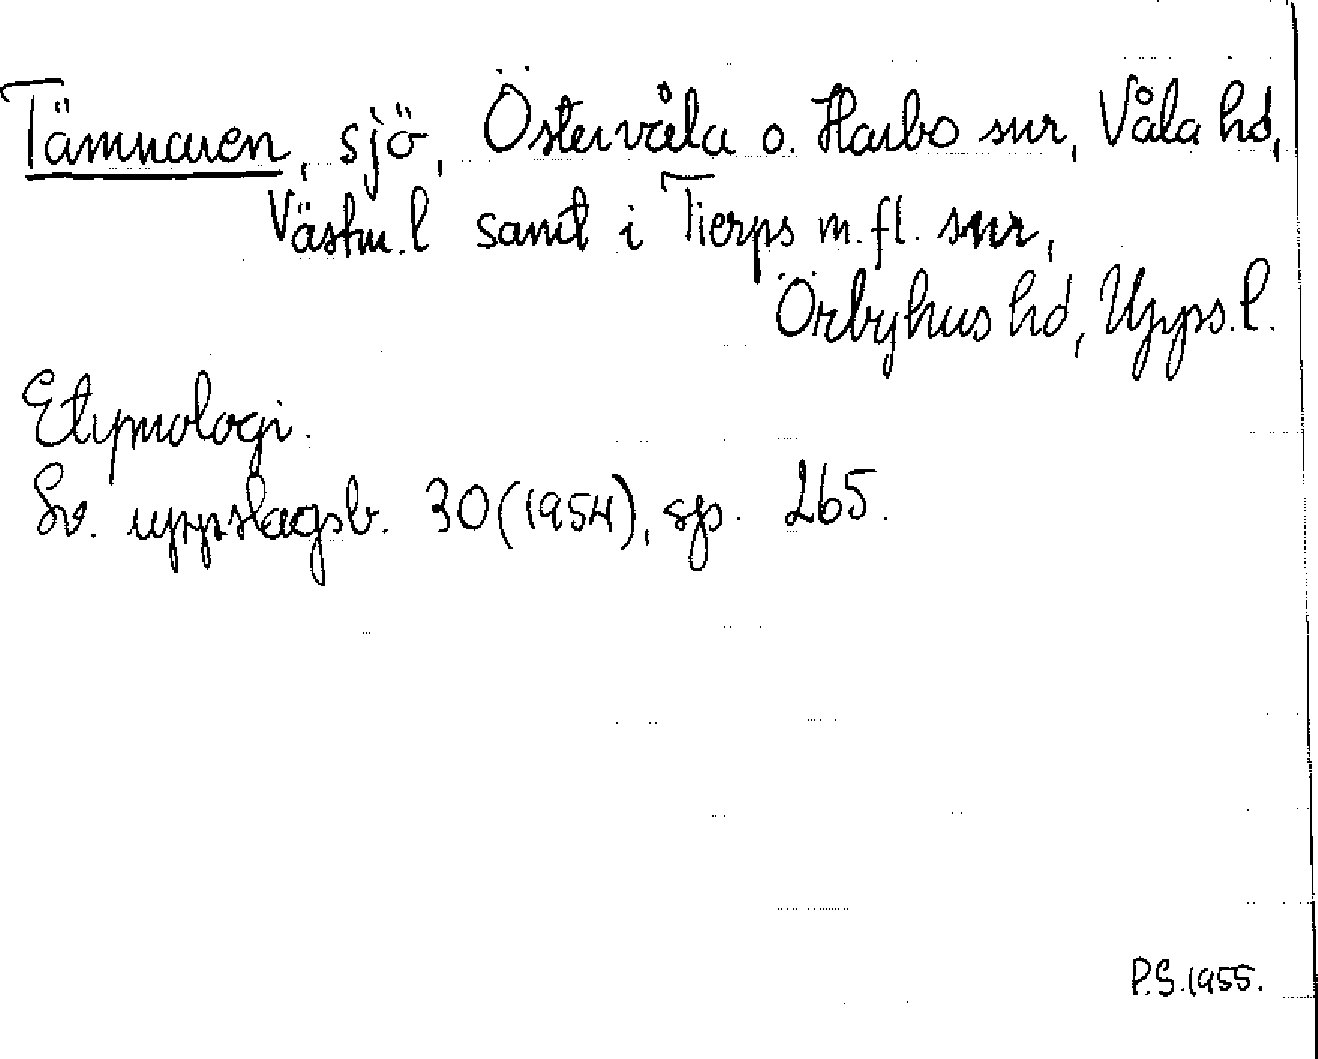 Tämnaren, sjö, Östervåla o. Harbo snr, Våla hd,
Västm.l samt i Tierps m.fl. snr,
Örbyhus hd, Upps.l.
Etymologi.
Sv. uppslagsb. 30(1954), sp. 265.
P.S.1955.